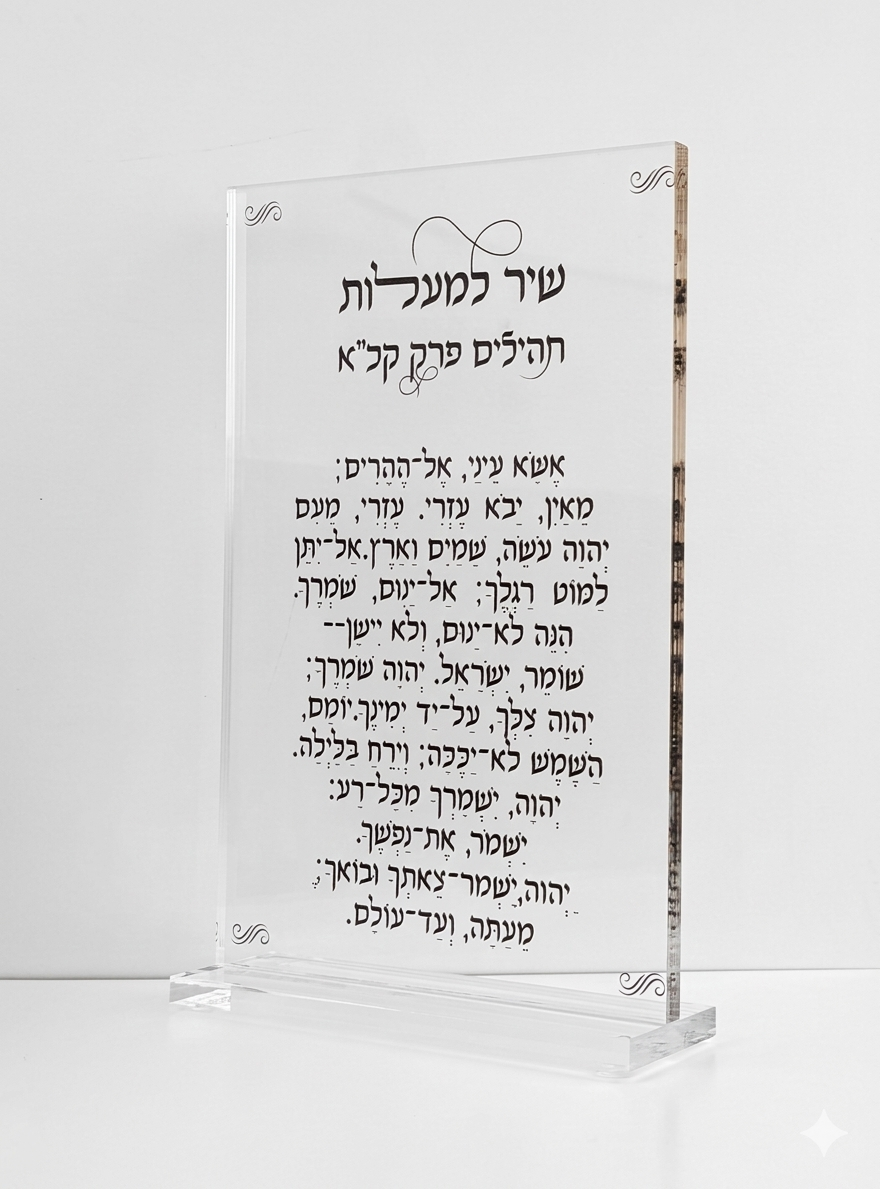 שיר למעלות
תהילים פרק קל"א
אֶשָּׂא עֵינַי, אֶל-הֶהָרִים;
מֵאַיִן, יָבֹא עֶזְרִי. עֶזְרִי, מֵעִם
יְהוָה עֹשֵׂה, שָׁמַיִם וָאָרֶץ.אַל-יִתֵּן
לַמּוֹט רַגְלֶךָ; אַל-יָנוּם, שֹׁמְרֶךָ.
הִנֵּה לֹא-יָנוּם, וְלֹא יִישָׁן--
שׁוֹמֵר, יִשְׂרָאֵל. יְהוָה שֹׁמְרֶךָ;
יְהוָה צִלְּךָ, עַל-יַד יְמִינֶךָ.יוֹמָם,
הַשֶּׁמֶשׁ לֹא-יַכֶּכָּה; וְיָרֵחַ בַּלָּיְלָה.
יְהוָה, יִשְׁמָרְךָ מִכָּל-רָע:
יִשְׁמֹר, אֶת-נַפְשֶׁךָ.
יְהוָה,יִשְׁמָר-צֵאתְךָ וּבוֹאֶךָ;
מֵעַתָּה, וְעַד-עוֹלָם.